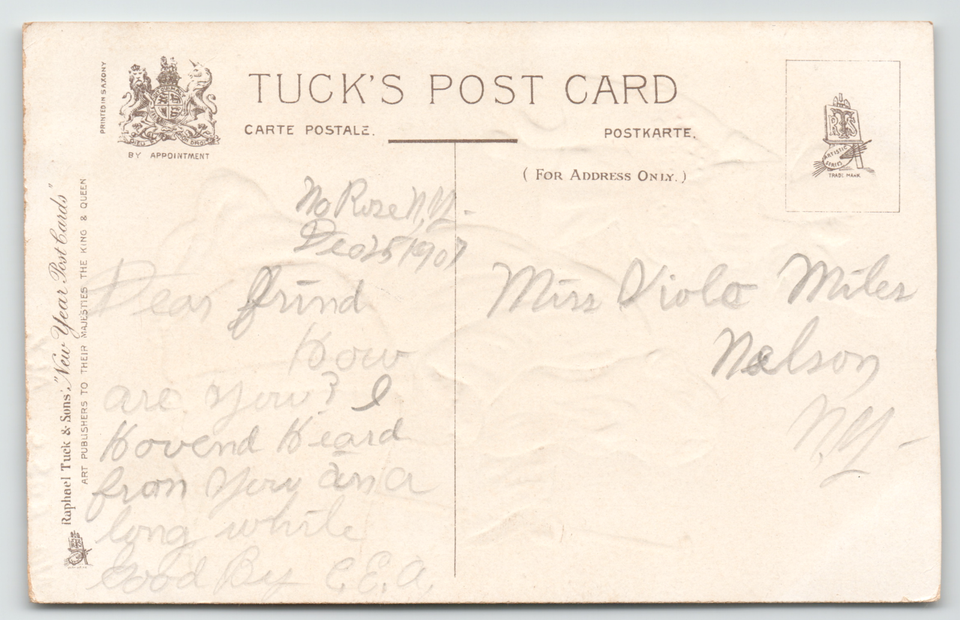 PRINTED IN SAXONY
BY APPOINTMENT
TUCK'S POST CARD
CARTE POSTALE.
POSTKARTE.
(FOR ADDRESS ONLY.)
TS
ARTISTIC
TRADE MARK
Raphael Tuck & Sons' "New Year Post Cards"
ART PUBLISHERS TO THEIR MAJESTIES THE KING & QUEEN
No Rose N.Y.
Dec 25 1907
Dear frind
How
are you? I
Hovend Heard
from you in a
long while
Good By C.E.A.
Miss Viola Miles
Nelson
N.Y.